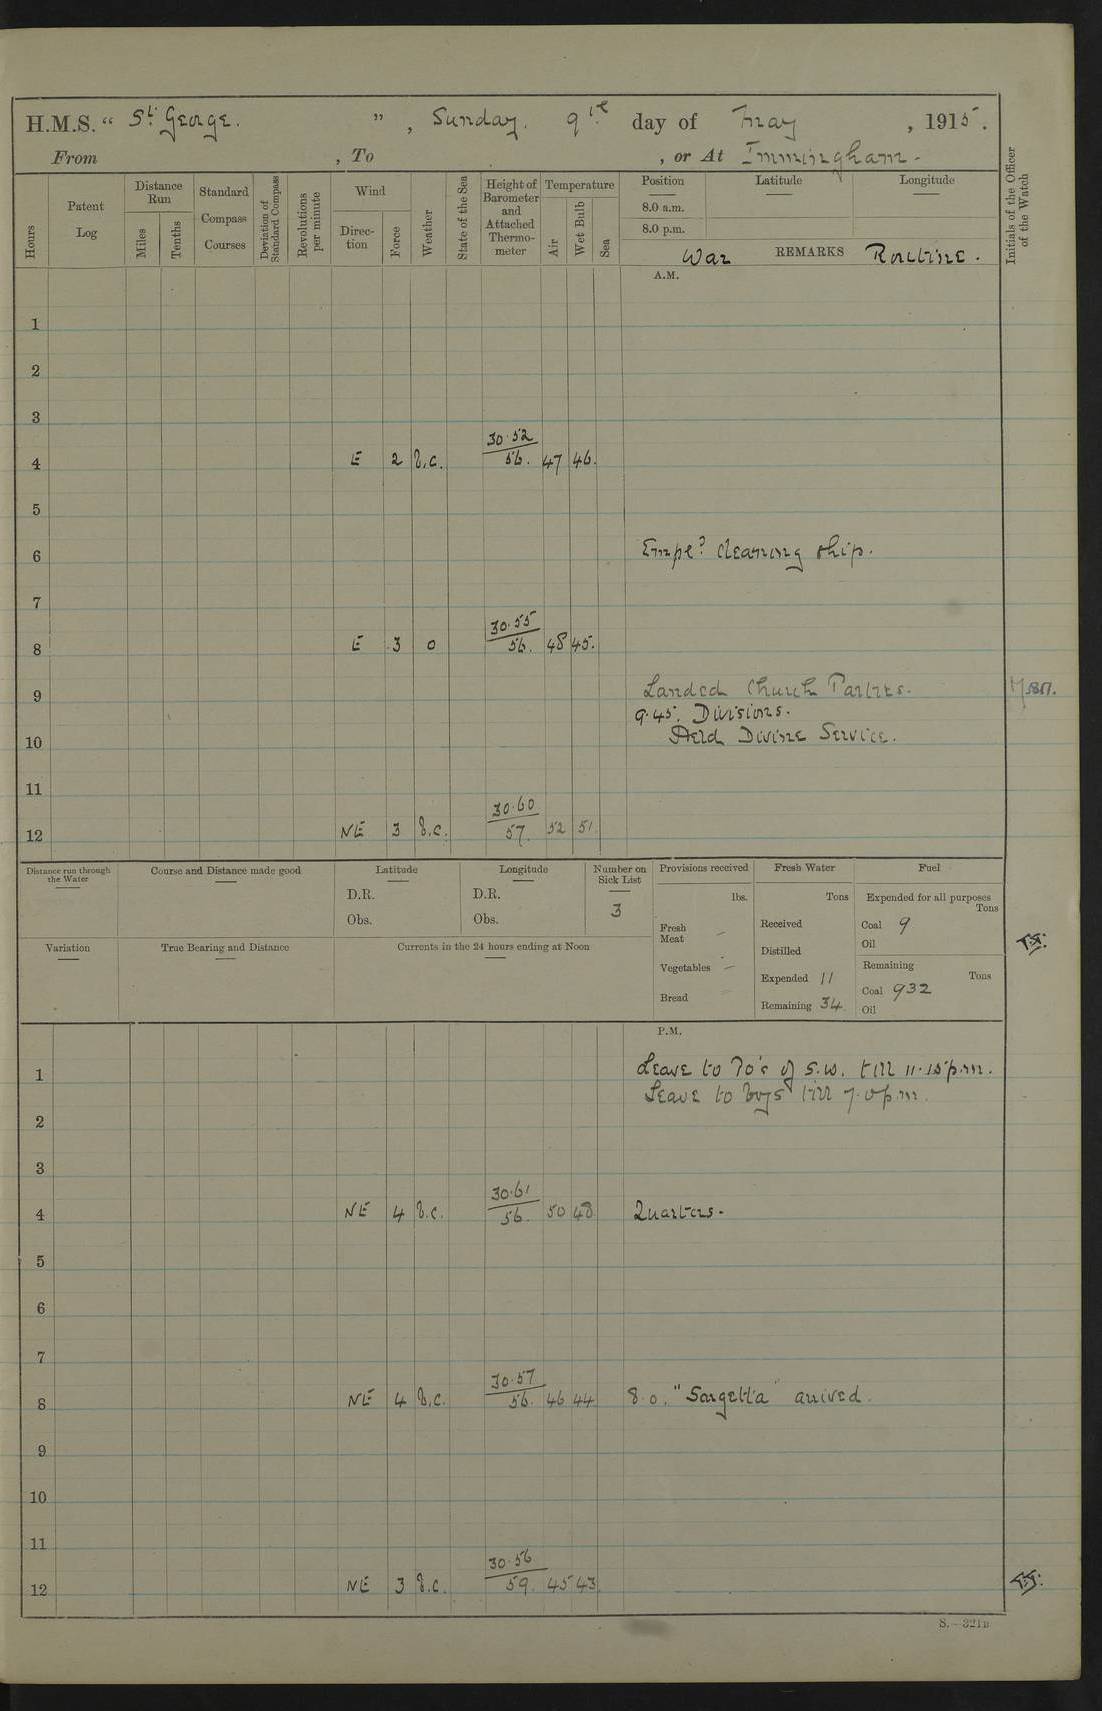 H.M.S. “ St. George. ” , Sunday. 9th day of May , 1915.
From , To , or At Immingham.
Hours
Patent Log
Distance Run
Miles
Tenths
Standard Compass Courses
Deviation of Standard Compass
Revolutions per minute
Wind
Direction
Force
Weather
State of the Sea
Height of Barometer and Attached Thermometer
Temperature
Air
Wet Bulb
Sea
Position Latitude Longitude
8.0 a.m.
8.0 p.m.
War REMARKS Routine.
Initials of the Officer of the Watch
A.M.
1
2
3
4 E 2 b.c. 30.52 56. 47 46.
5
6 Empd. cleaning ship.
7
8 E 3 o 30.55 56. 48 45.
9 Landed Church Parties.
9.45. Divisions.
10 Held Divine Service.
11
12 NE 3 b.c. 30.60 57. 52 51
Distance run through the Water
Course and Distance made good
Latitude
D.R.
Obs.
Longitude
D.R.
Obs.
Number on Sick List
3
Provisions received
lbs.
Fresh Meat –
Vegetables –
Bread
Fresh Water
Tons
Received
Distilled
Expended 11
Remaining 34
Fuel
Expended for all purposes
Tons
Coal 9
Oil
Remaining
Tons
Coal 932
Oil
Variation
True Bearing and Distance
Currents in the 24 hours ending at Noon
P.M.
1 Leave to 70's of S.W. till 11.15 p.m.
Leave to boys till 7.0 p.m.
2
3
4 NE 4 b.c. 30.61 56. 50 48 Quarters.
5
6
7
8 NE 4 b.c. 30.57 56. 46 44 8.0. "Sargetta" arrived.
9
10
11
12 NE 3 b.c. 30.56 59. 45 43.
S.—321B